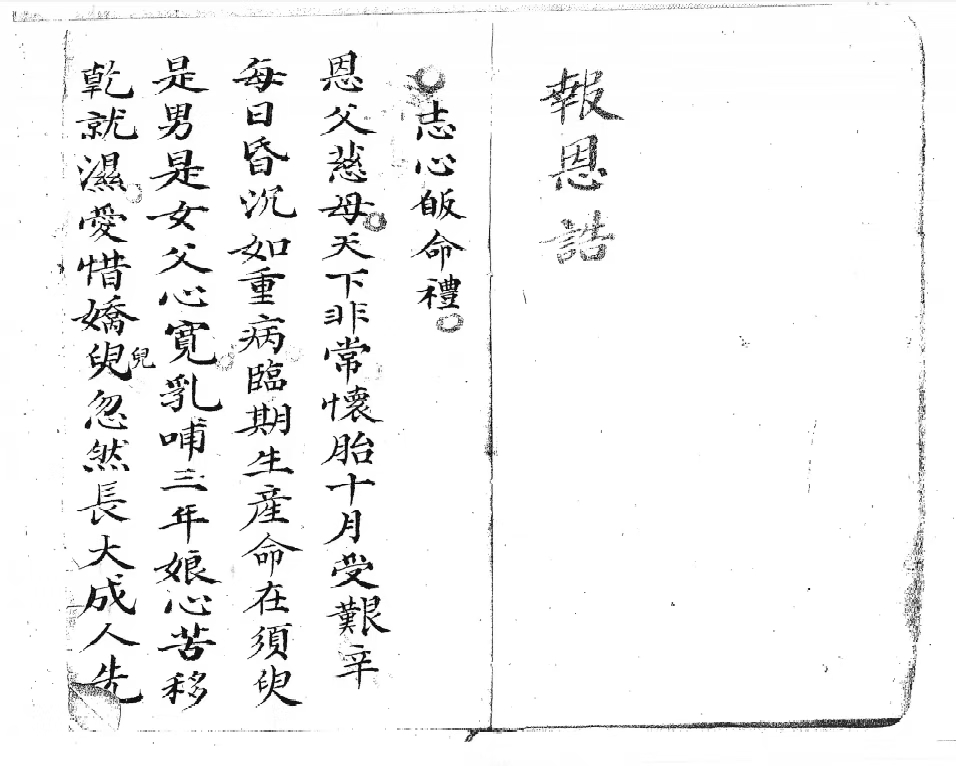 報恩誥
志心皈命禮
恩父慈母天下非常懷胎十月受艱辛
每日昏沉如重病臨期生產命在須臾
是男是女父心寬乳哺三年娘心苦移
乾就濕愛惜嬌臾兒忽然長大成人先